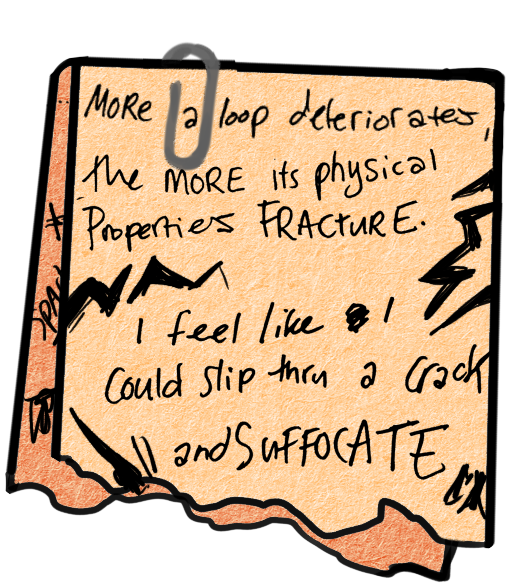 MORE a loop deteriorates,
the MORE its physical
Properties FRACTURE.
I feel like I
Could slip thru a crack
and SUFFOCATE